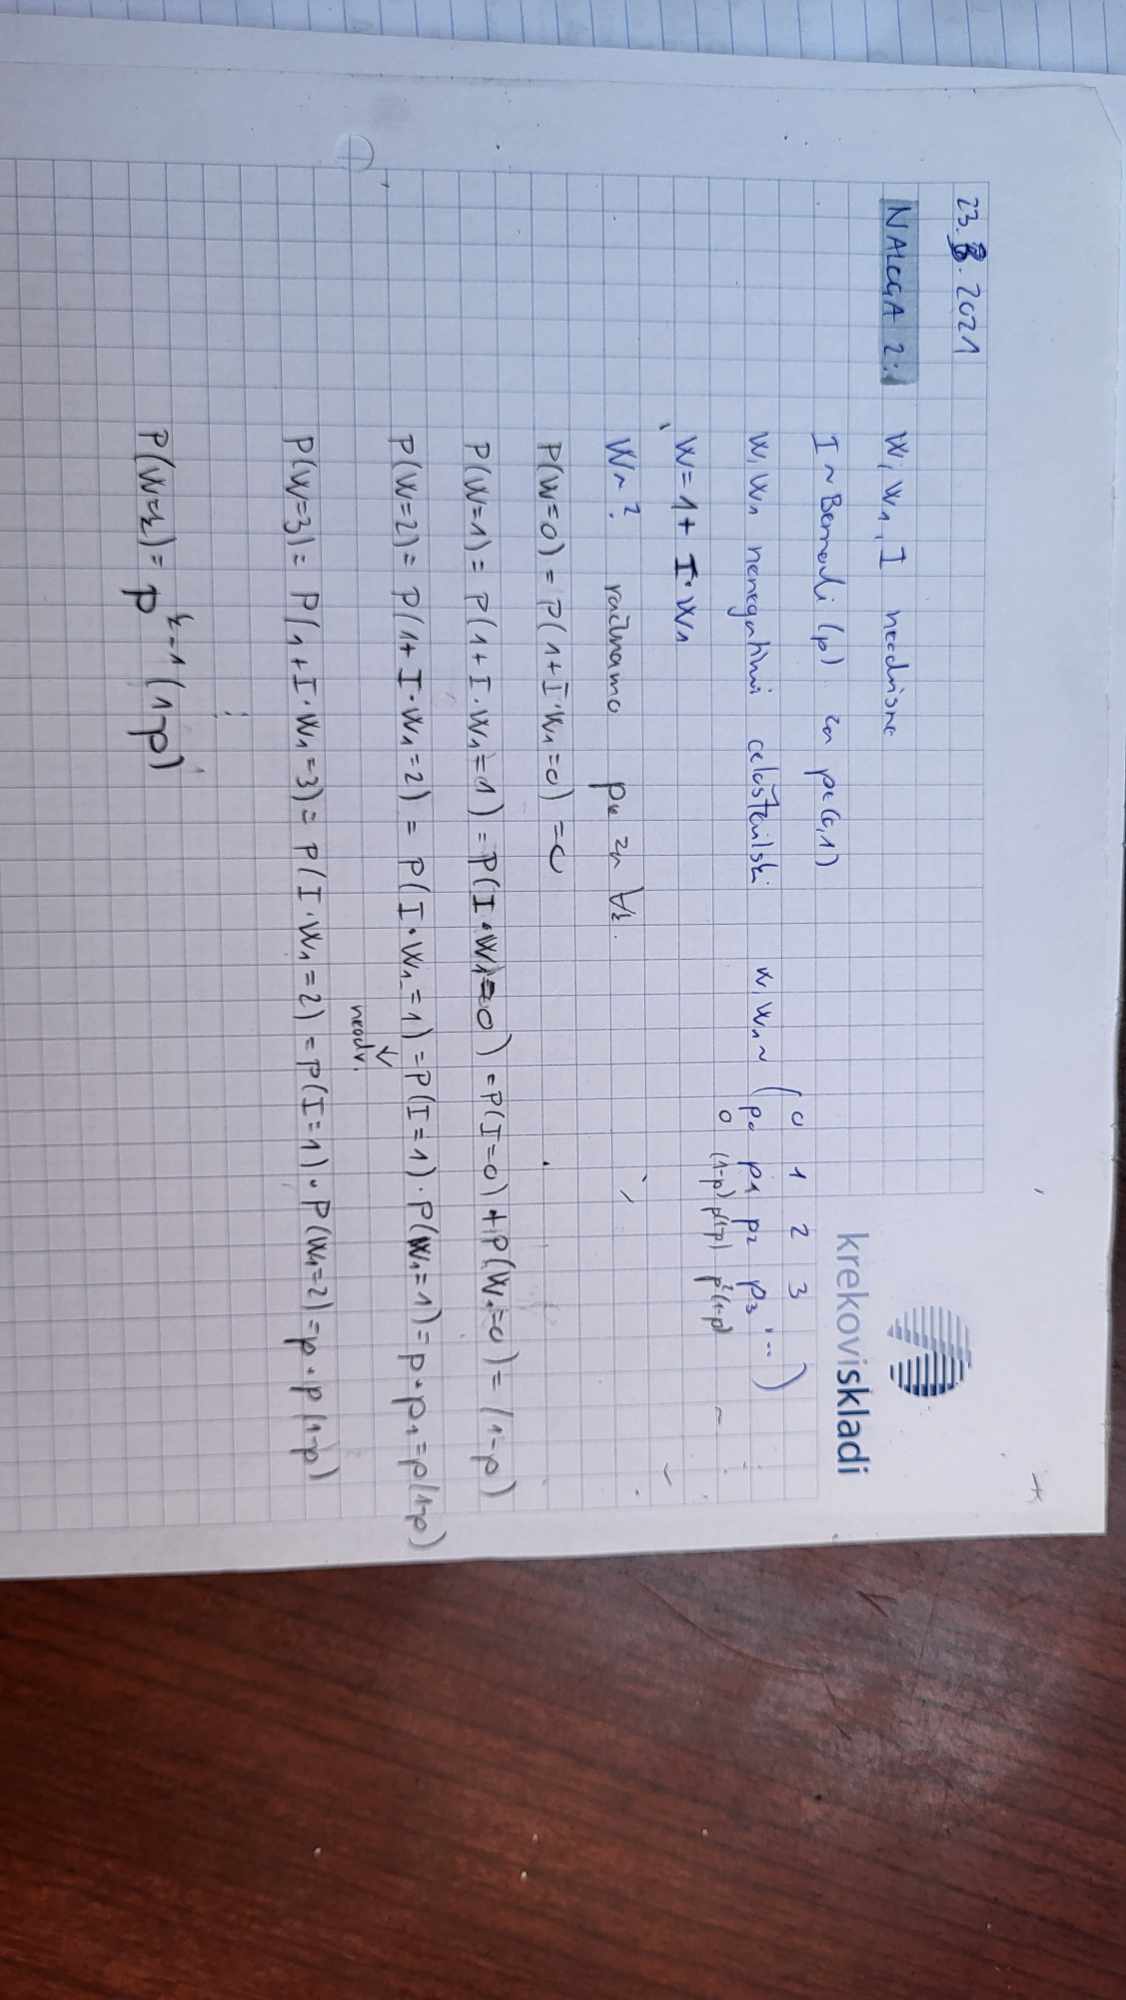 krekoviskladi
23.8.2021
NALOGA 2: W, W₁, I neodvisne
I ~ Bernoulli (p) za p∈(0,1)
W, W₁ nenegativni celoštevilski W, W₁ ~ ( 0 1 2 3
p₀ p₁ p₂ p₃ ... )
0 (1-p) p(1-p) p²(1-p)
W = 1 + I·W₁
W ~ ? računamo pₖ za ∀k.
P(W=0) = P(1+I·W₁=0) = 0
P(W=1) = P(1+I·W₁=1) = P(I·W₁=0) = P(I=0) + P(W₁=0) = (1-p)
P(W=2) = P(1+I·W₁=2) = P(I·W₁=1) = P(I=1)·P(W₁=1) = p·p₁ = p(1-p)
neodv.
P(W=3) = P(1+I·W₁=3) = P(I·W₁=2) = P(I=1)·P(W₁=2) = p·p(1-p)
⋮
P(W=k) = p^{k-1}(1-p)